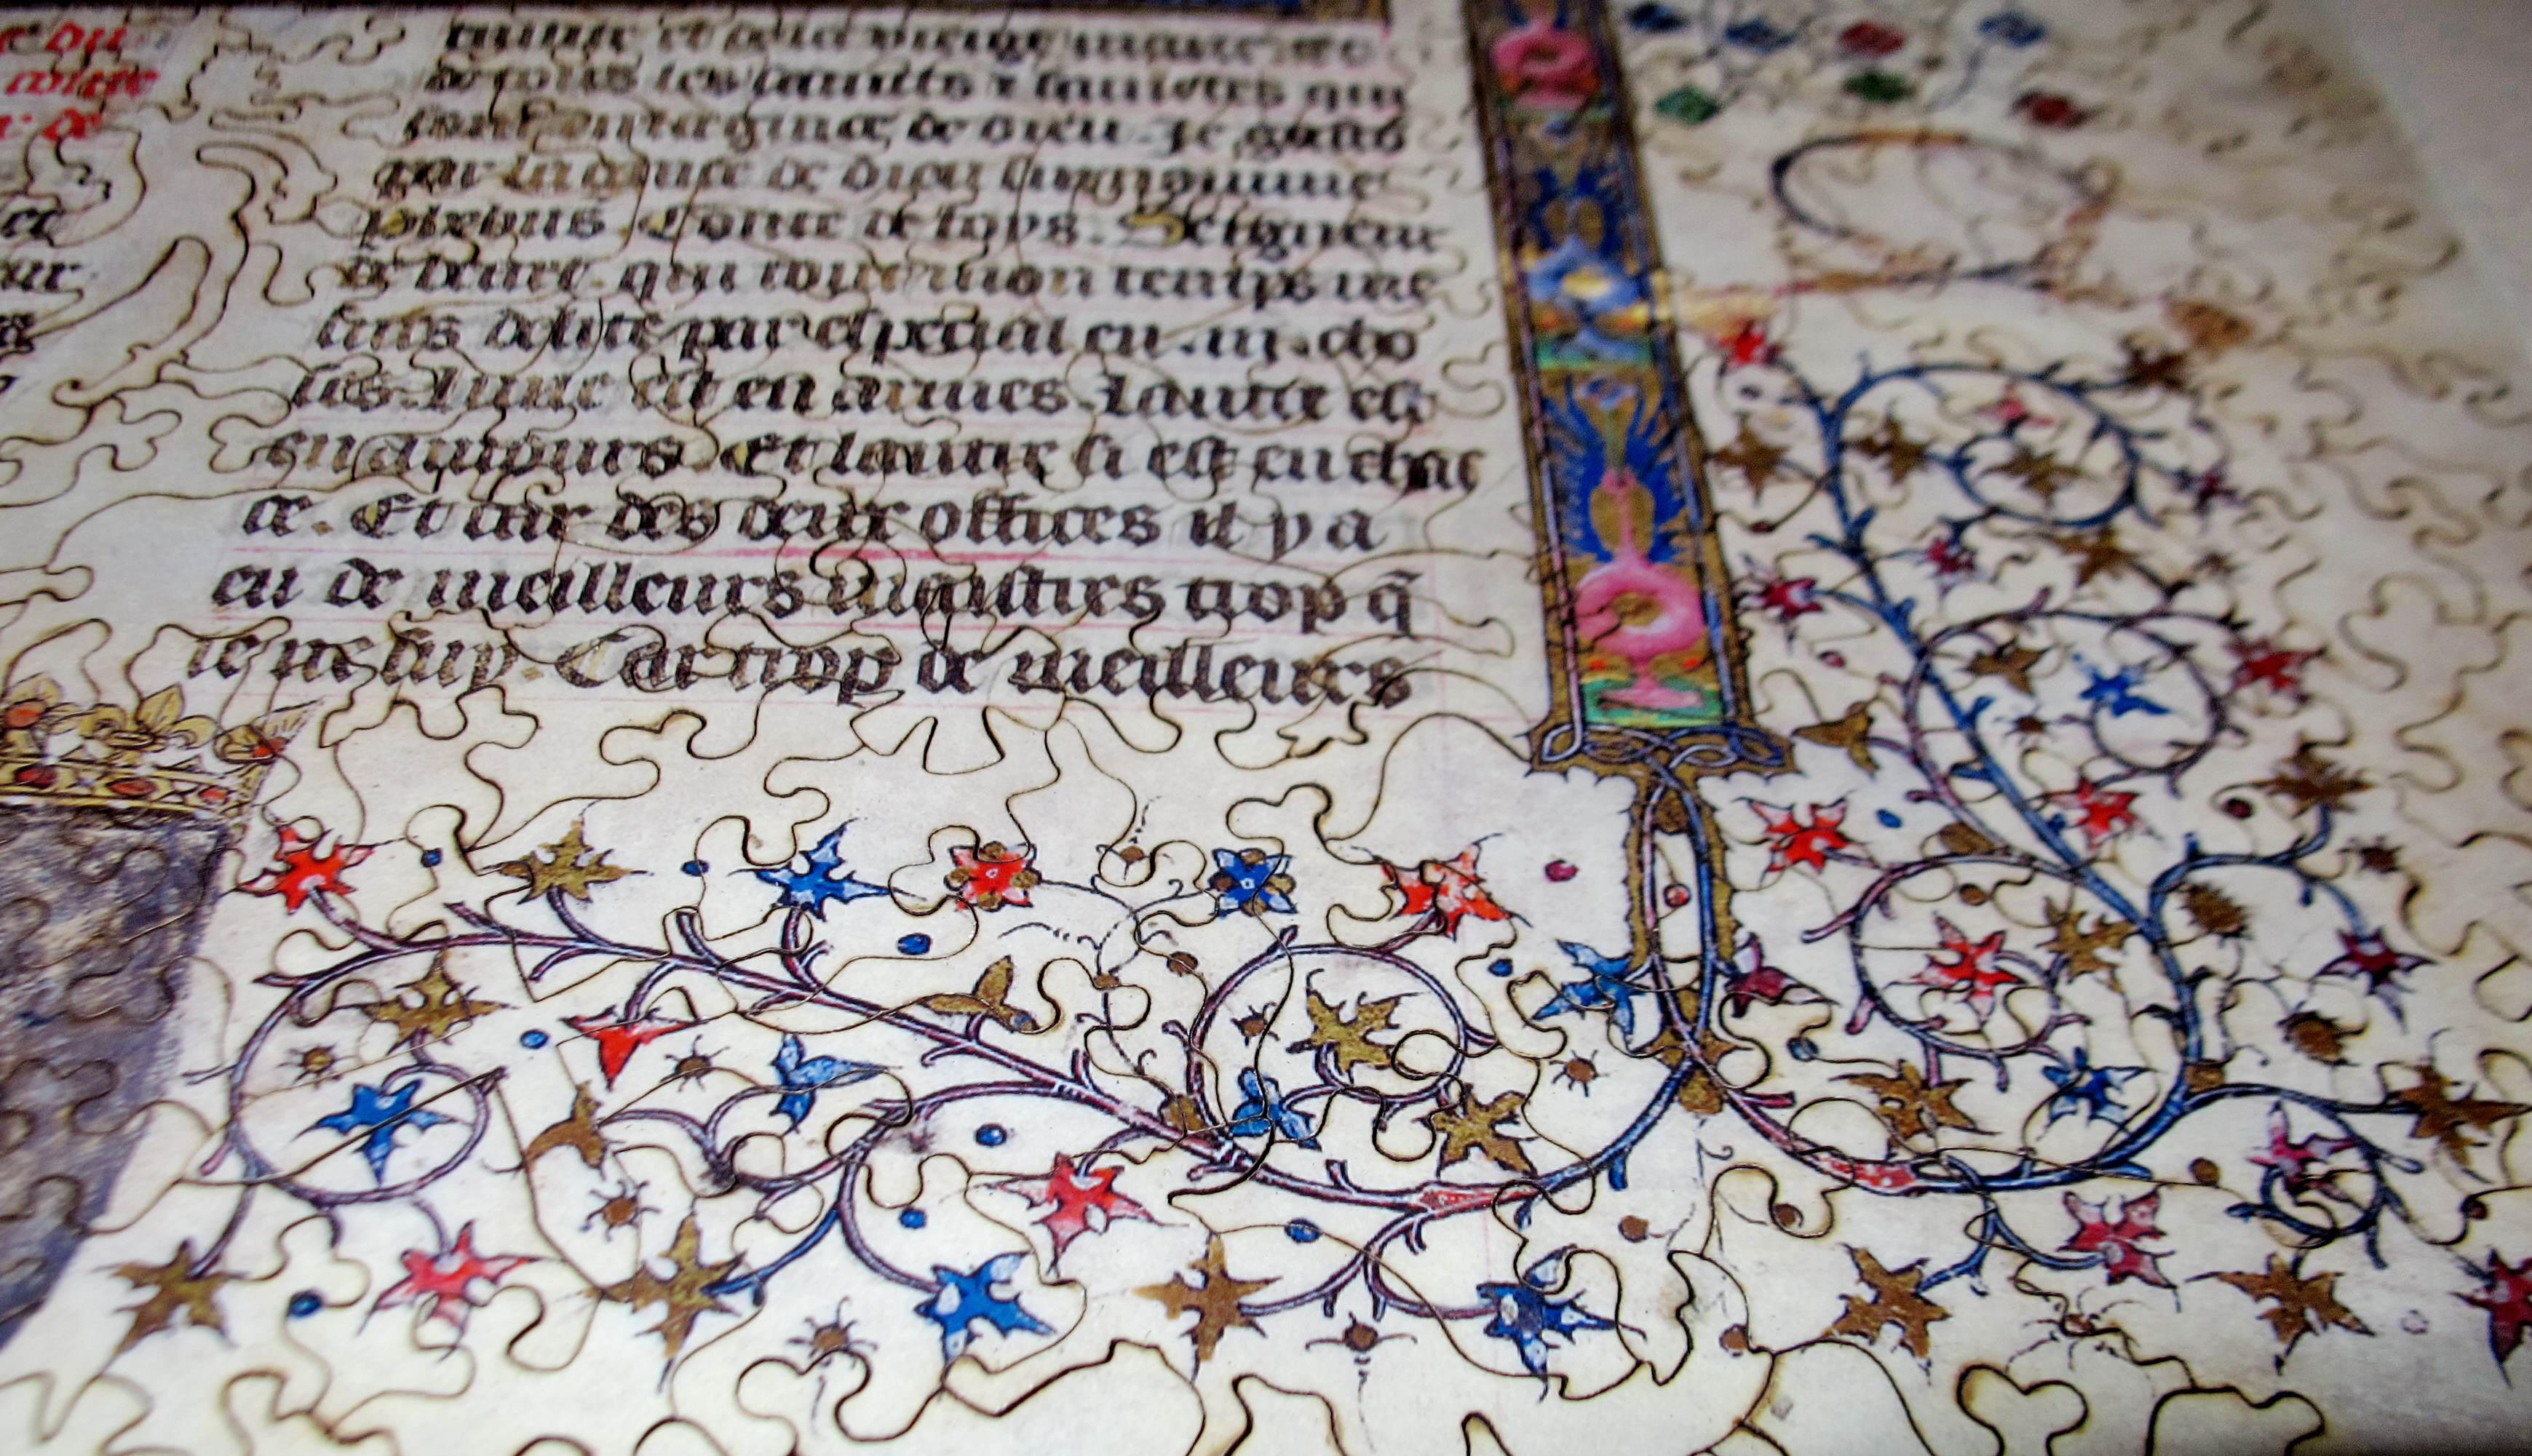 du
conte
de
et de la vierge marie. et
de tous les saincts & sainctes qui
sont en la grace de dieu. Je gasto
par la grace de dieu surnomme
phebus. Conte de foys. Seigneur
de bearn. qui tout mon temps me
suis delite par especial en .iij. cho
ses. Lune est en armes. Lautre est
en amours. Et lautre si est en chac
ce. Et car des deux offices il y a
eu de meilleurs maistres trop q̄
ie ne suy. Car trop de meilleurs